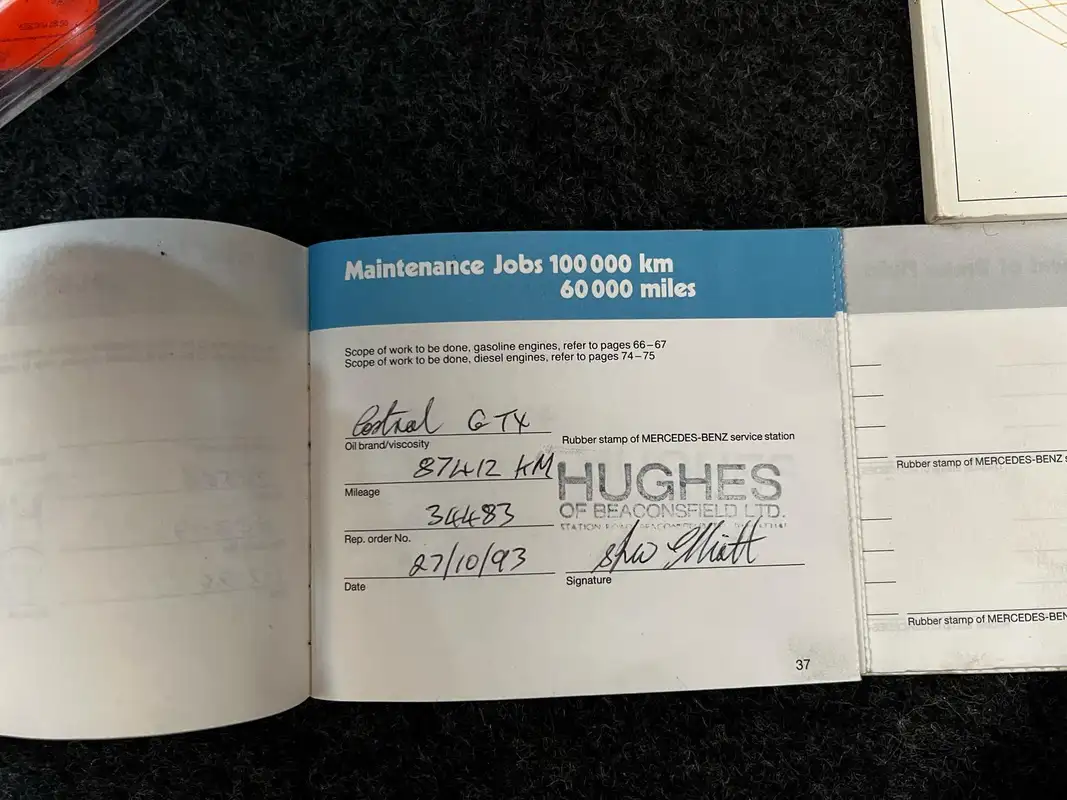 Maintenance Jobs 100 000 km
60 000 miles
Scope of work to be done, gasoline engines, refer to pages 66–67
Scope of work to be done, diesel engines, refer to pages 74–75
Castrol GTX
Oil brand/viscosity
Rubber stamp of MERCEDES-BENZ service station
87412 KM
Mileage
HUGHES
OF BEACONSFIELD LTD.
STATION ROAD
34483
Rep. order No.
27/10/93
Date
Elliott
Signature
37
Rubber stamp of MERCEDES-BENZ
Rubber stamp of MERCEDES-BEN